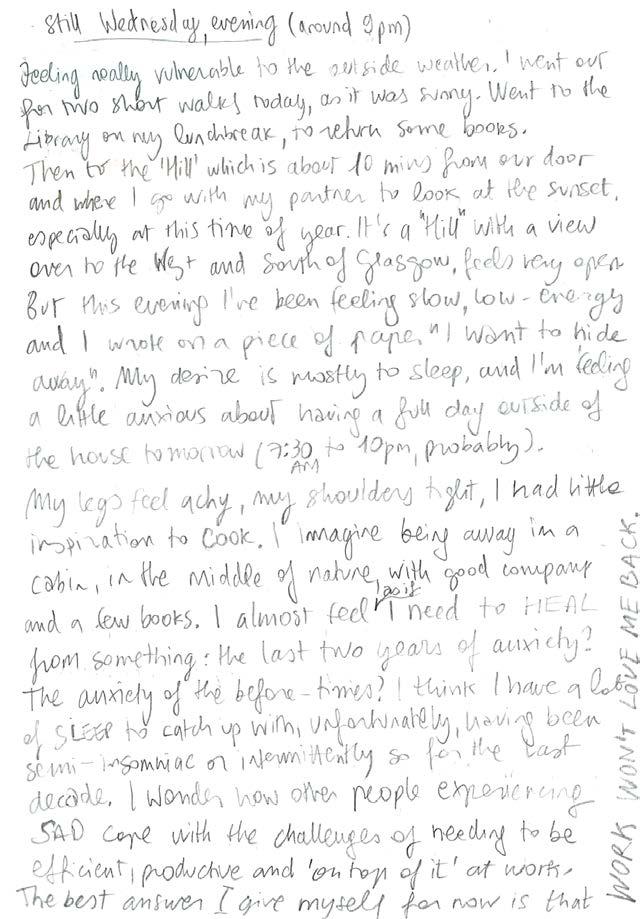 Still Wednesday, evening (around 9pm)
Feeling really vulnerable to the outside weather. I went out
for two short walks today, as it was sunny. Went to the
Library on my lunchbreak, to return some books.
Then to the 'Hill' which is about 10 mins from our door
and where I go with my partner to look at the sunset,
especially at this time of year. It's a "Hill" with a view
over to the West and South of Glasgow, feels very open.
But this evening I've been feeling slow, low-energy
and I wrote on a piece of paper "I want to hide
away". My desire is mostly to sleep, and I'm feeling
a little anxious about having a full day outside of
the house tomorrow (7:30 to 10pm, probably).
AM
My legs feel achy, my shoulders tight, I had little
inspiration to cook. I imagine being away in a
cabin, in the middle of nature, with good company
as if
and a few books. I almost feel I need to HEAL
from something: the last two years of anxiety?
The anxiety of the before-times? I think I have a lot
of SLEEP to catch up with, unfortunately, having been
semi-insomniac or intermittently so for the last
decade. I wonder how other people experiencing
SAD cope with the challenges of needing to be
efficient, productive and 'on top of it' at work.
The best answer I give myself for now is that
WORK WON'T LOVE ME BACK.